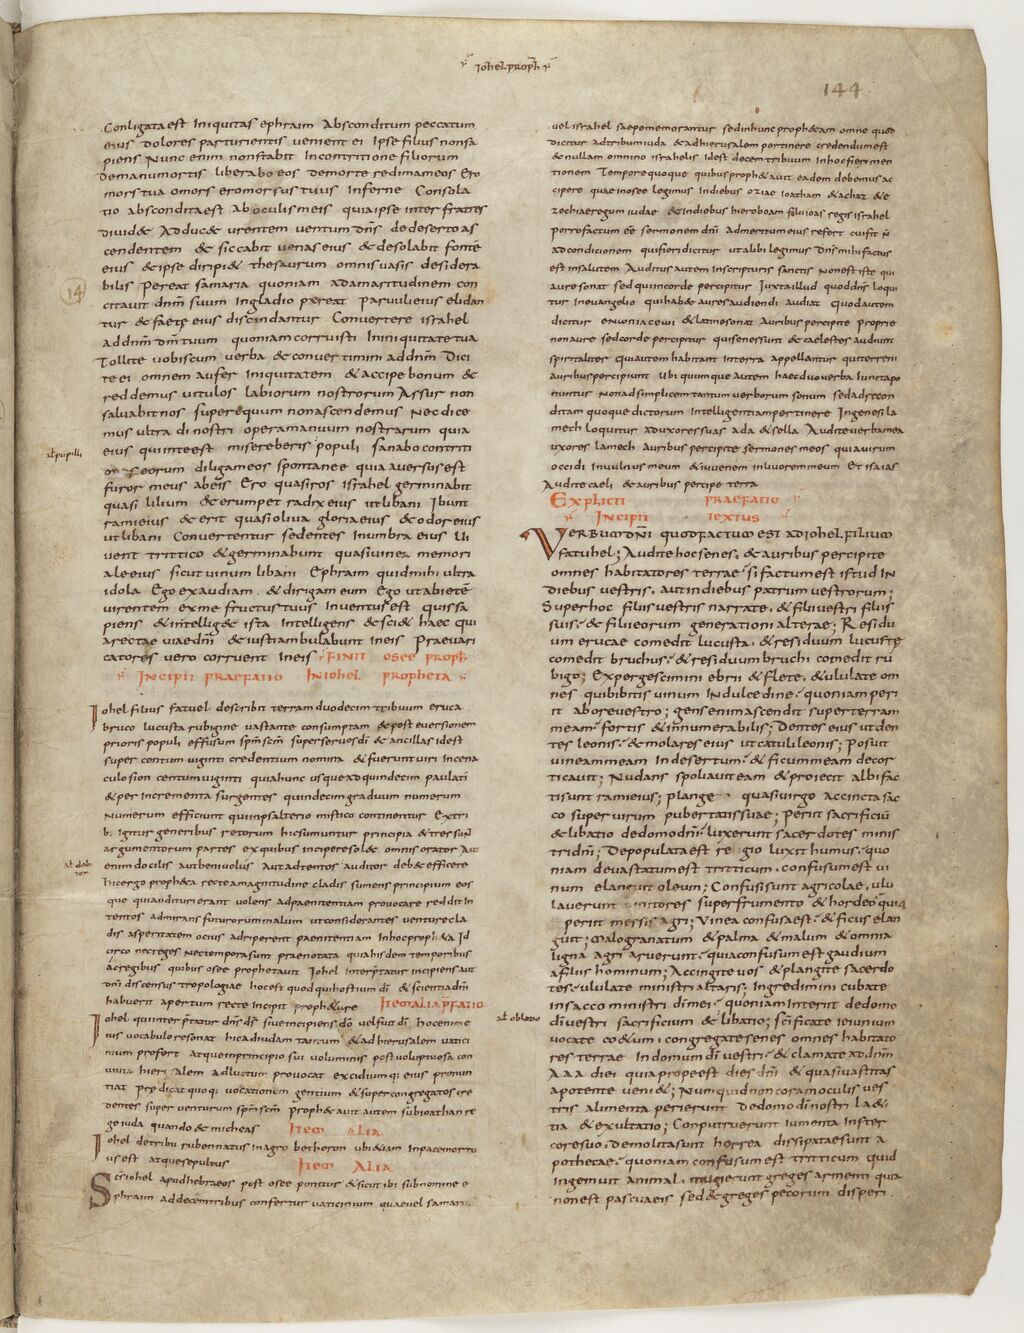 Iohel proph
144
Conligata est Iniquitas ephraim Absconditum peccatum
eius Dolores parturientis venient ei Ipse filius nonsa
piens Nunc enim nonstabit Incontritione filiorum
Demanumortis liberabo eos demorte redimameos Ero
mors tua omors eromorsus tuus Inferne Consola
tio abscondita est Ab oculis meis quia ipse inter fratres
dividet Adducet urentem ventum dns de deserto as
cendentem et siccabit venas eius et desolabit fonte
eius et ipse diripiet thesaurum omnis vasis desidera
bilis Pereat samaria quoniam ad amaritudinem con
14
citavit dnm suum Ingladio pereat Parvuli eius elidan
tur et faete eius discindantur Convertere israhel
ad dnm dm tuum quoniam corruisti In iniquitate tua
Tollite vobiscum verba et convertimini ad dnm Dici
te ei omnem aufer Iniquitatem et accipe bonum et
reddemus vitulos labiorum nostrorum Assur non
salvabit nos super equum non ascendemus Nec dice
mus ultra di nostri opera manuum nostrarum quia
eius qui in te est misereberis populi Sanabo contriti
al pupilli
ones eorum diligam eos spontanee quia aversus est
furor meus ab eis Ero quasi ros Israhel germinabit
quasi lilium et erumpet radix eius ut libani Ibunt
rami eius et erit quasi oliva gloria eius et odor eius
ut libani Convertentur sedentes In umbra eius Vi
vent trittico et germinabunt quasi vinea Memori
ale eius sicut vinum libani Ephraim quid mihi ultra
idola Ego exaudiam et dirigam eum Ego ut abietem
virentem ex me fructus tuus Inventus est Quis sa
piens et intelliget ista Intelligens et sciet haec qui
a rectae viae dni et iusti ambulabunt In eis Praevari
catores vero corruent In eis FINIT OSEE PROPH
INCIPIT PRAEFATIO IN IOHEL PROPHETA
Iohel filius fatuel describit terram duodecim tribuum eruca
bruco lucusta rubigine vastante consumptam et post eversionem
prioris populi effusum spm scm super servos di et ancillas id est
super centum viginti credentium nomina et fuerunt viri In cena
culo sion centum viginti quia hunc usque ad quindecim paulati
et per incrementa surgentes quindecim graduum numerum
Numerum efficiunt qui In psalterio mistico continentur Extri
b; igitur generibus retorum hic sumuntur principia et tres sunt
argumentorum partes ex quibus incipere solet omnis orator Aut
al dabi
tor
enim docilis aut benivolus Aut adtentos auditor debet efficere
hic ergo propheta recte a magnitudine cladis sumens principium eos
que qui audituri erant volens ad paenitentiam provocare reddit In
tentos admirans futurorum malum ut considerantes venture cla
dis asperitatem ocius adriperent paenitentiam In hoc propheta Id
circo nec reges nec tempora sunt praenotata quia hisdem temporibus
ac regibus quibus osee prophetavit Iohel interpretatur incipiens aut
dni discensus tropologiae hoc est quod qui hostium di et scientia dni
habuerit apertum recte incipit prophetare ITEM ALIA PRFATIO
Iohel qui interpretatur dns ds sive incipiens do vel fuit di hoc enim e
ius vocabulo resonat hic ad iudam tantum et ad hierusalem vatici
nium profert atque in principio sui voluminis post voluptuosa con
vivia hierusalem ad luctum provocat excidiumq; eius pronun
tiat Predicat quoq; vocationem gentium et super congregatos cre
dentes super venturum spm scm Prophetavit autem sub ioathan re
ge iuda quando et micheas ITEM ALIA
Iohel de tribu ruben natus in agro bethoron ubi etiam In pace mortu
us est atque sepultus ITEM ALIA
Scs Iohel apud hebraeos post osee ponitur et sicut ibi sub nomine e
phraim ad decem tribus confertur vaticinium quae vel samari
vel israhel saepe memorantur sed in hunc prophetam omne quod
Dicitur ad tribum iuda et ad hierusalem pertinere credendum est
et nullam omnino israhelis id est decem tribuum In hoc fieri men
tionem Tempore quoque quibus prophetavit eadem debemus ac
cipere quae in osee legimus In diebus oziae ioatham et achaz et e
zechiae regum iudae et In diebus hieroboam filii ioas regis israhel
Porro factum esse sermonem dni Ad meritum eius refert cui fit n
ad condicionem qui fieri dicitur ut alibi legimus Dns mihi factus
est in salutem Auditus autem In scripturis sanctis Non est iste qui
aure sonat sed qui In corde percipitur Iuxta illud quod dns loqui
tur In evangelio qui habet aures audiendi audiat quod autem
dicitur latine sonat Auribus percipite Proprie
non aure sed corde percipitur qui senes sunt et caelestes audiunt
spiritaliter qui autem habitant In terra appellantur qui terreni
auribus percipiunt Ubi quumque autem haec duo verba Iuncta po
nuntur Non ad simplicem tantum verborum sonum sed ad recon
ditam quoque dictorum Intelligentiam pertinere In genesi la
mech loquitur ad uxores suas ada et sella Audite verba mea
uxores lamech Auribus percipite sermones meos quia virum
occidi In vulnus meum et iuvenem in livorem meum Et isaias
Audite caeli et auribus percipe terra
EXPLICIT PRAEFATIO
INCIPIT TEXTUS
VERBUM DNI QUOD FACTUM EST AD IOHEL FILIUM
fatuhel; Audite hoc senes, et auribus percipite
omnes habitatores terrae si factum est istud In
Diebus vestris, aut in diebus patrum vestrorum;
Super hoc filiis vestris narrate, et filii vestri filiis
suis, et filii eorum generationi alterae; Residu
um erucae comedit lucusta, et residuum lucuste
comedit bruchus, et residuum bruchi comedit ru
bigo; Expergescimini ebrii et flete, et ululate om
nes qui bibitis vinum In dulcedine, quoniam peri
it ab ore vestro; gens enim ascendit super terram
meam fortis et innumerabilis; Dentes eius ut den
tes leonis, et molares eius ut catuli leonis; Posuit
vineam meam In desertum et ficum meam decor
ticavit; Nudans spoliavit eam et proiecit albi fac
ti sunt rami eius; plange quasi virgo accincta sac
co super virum pubertatis suae; Periit sacrificiu
et libatio de domo dni luxerunt sacerdotes minis
tri dni; Depopulata est regio luxit humus, quo
niam devastatum est tritticum, confusum est vi
num elanguit oleum; Confusi sunt agricolae, ulu
laverunt vinitores super frumento et hordeo quia
periit messis agri; Vinea confusa est et ficus elan
guit; Malogranatum et palma et malum et omnia
ligna agri aruerunt quia confusum est gaudium
a filiis hominum; Accingite vos et plangite sacerdo
tes ululate ministri altaris; Ingredimini cubate
in sacco ministri di mei quoniam interiit de domo
al oblatio
di vestri sacrificium et libatio; scificate ieiunium
vocate coetum congregate senes omnes habitato
res terrae In domum di vestri et clamate ad dnm
A A A diei quia prope est dies dni et quasi vastitas
a potente veniet; Numquid non coram oculis ves
tris alimenta perierunt De domo di nostri laeti
tia et exultatio; Conputruerunt iumenta In ster
core suo Demolita sunt horrea dissipatae sunt a
pothecae quoniam confusum est tritticum quid
ingemuit animal, mugierunt greges armenti quia
non est pascua eis sed et greges pecorum disperi